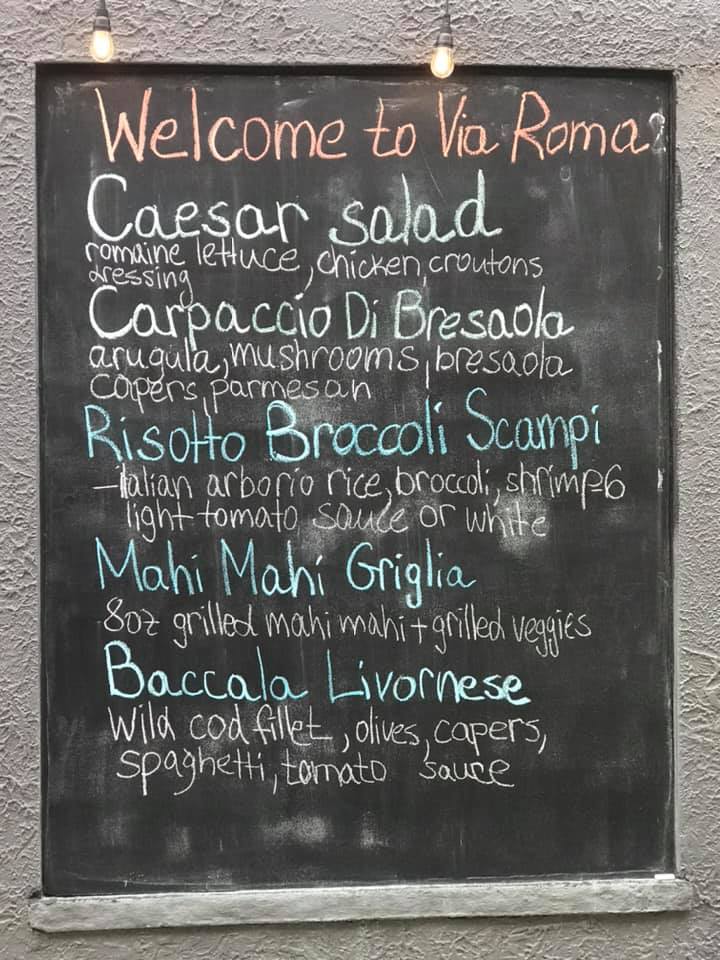 Welcome to Via Roma
Caesar salad
romaine lettuce, chicken, croutons
dressing
Carpaccio Di Bresaola
arugula, mushrooms, bresaola
capers, parmesan
Risotto Broccoli Scampi
-italian arborio rice, broccoli, shrimp-6
light tomato sauce or white
Mahi Mahi Griglia
8oz grilled mahi mahi + grilled veggies
Baccala Livornese
Wild cod fillet, olives, capers,
spaghetti, tomato sauce